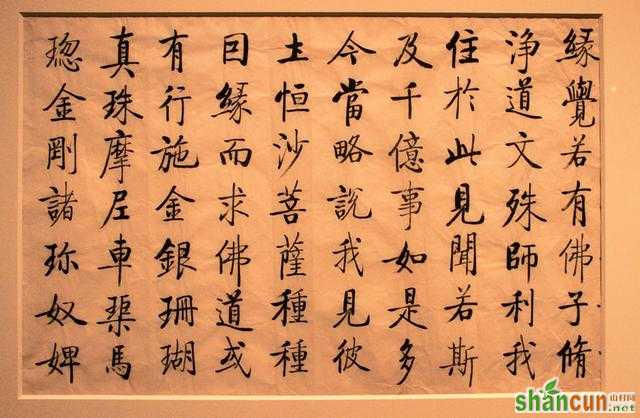 緣覺若有佛子脩
淨道文殊師利我
住於此見聞若斯
及千億事如是多
今當略說我見彼
土恒沙菩薩種種
囙緣而求佛道或
有行施金銀珊瑚
真珠摩尼車璖馬
瑙金剛諸珎奴婢
shancun 山村网
.net